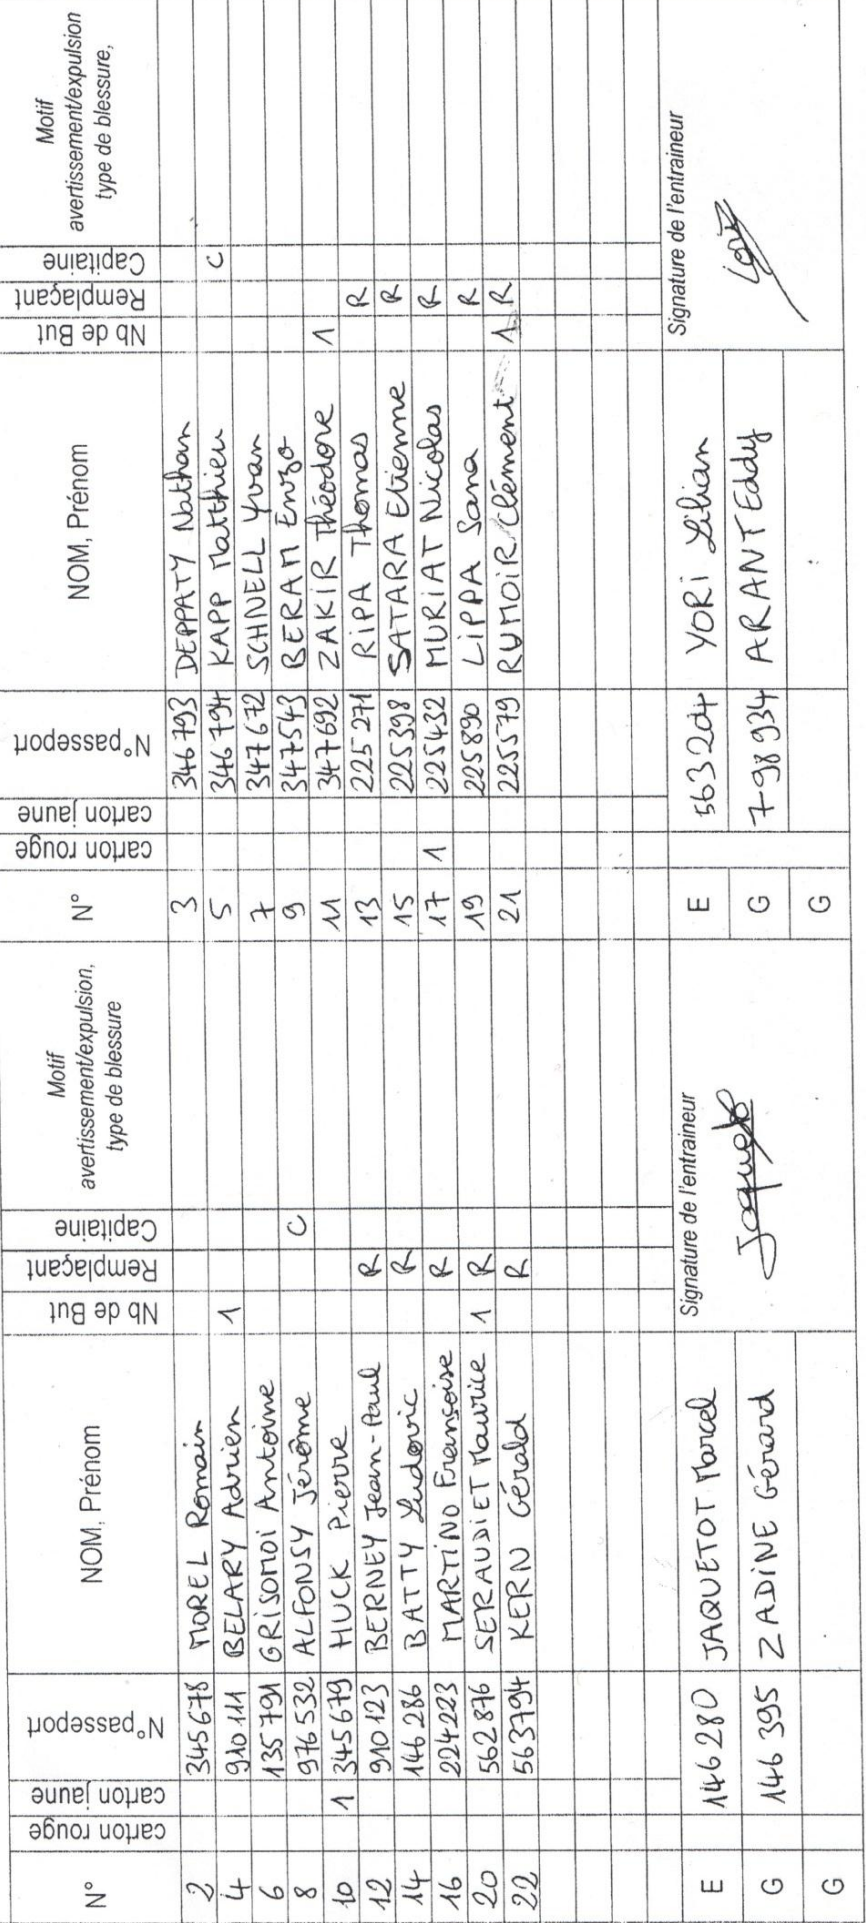 N° carton rouge carton jaune N°passeport NOM, Prénom Nb de But Remplaçant Capitaine Motif
avertissement/expulsion,
type de blessure
2 345678 MOREL Romain
4 910111 BELARY Adrien 1
6 135791 GRISOMOI Antoine
8 976532 ALFONSY Jérôme C
10 1 345679 HUCK Pierre
12 910123 BERNEY Jean-Paul R
14 146286 BATTY Ludovic R
16 224223 MARTINO Françoise R
20 562876 SERAUDIET Maurice 1 R
22 563794 KERN Gérald R
E 146280 JAQUETOT Marcel
G 146395 ZADINE Gérard
G
Signature de l'entraineur
N° carton rouge carton jaune N°passeport NOM, Prénom Nb de But Remplaçant Capitaine Motif
avertissement/expulsion
type de blessure,
3 346793 DEPPATY Nathan
5 346794 KAPP Matthieu C
7 347672 SCHNELL Yvan
9 347543 BERAM Enzo
11 347692 ZAKIR Théodore 1
13 225271 RIPA Thomas R
15 225398 SATARA Etienne R
17 1 225432 MURIAT Nicolas R
19 225890 LIPPA Sana R
21 225579 RUMOIR Clément 1 R
E 563204 YORI Lilian
G 798934 ARANT Eddy
G
Signature de l'entraineur